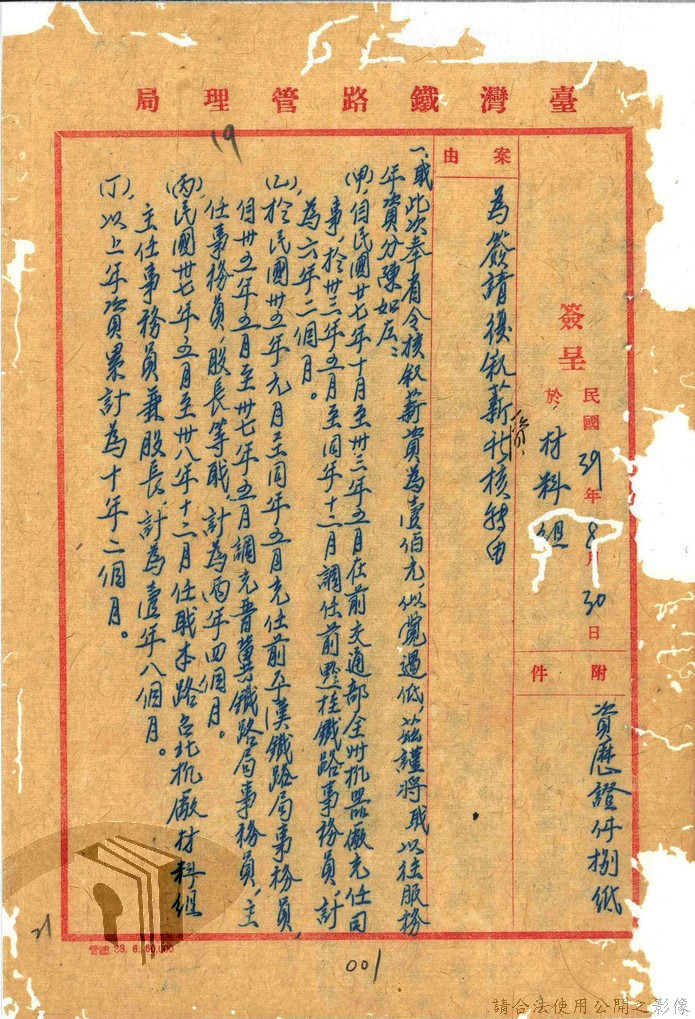 臺灣鐵路管理局
19
簽呈
民國39年8月30日
於材料組
附件
資歷證件捌紙
案由
為簽請復敘薪資祈核轉由
一、職此次奉省令核敘薪資為壹佰元，似覺過低，茲謹將職以往服務
年資分陳如左：
(甲)，自民國廿七年十月至卅三年五月在前交通部全州机器廠充任司
事，於卅三年五月至同年十二月調任前黔桂鐵路事務員，計
為六年二個月。
(乙)於民國卅五年元月至同年五月充任前平漢鐵路局事務員，
自卅五年五月至卅七年五月調充晋冀鐵路局事務員，主
任事務員，股長等職，計為兩年四個月。
(丙)，民國卅七年五月至卅八年十二月任職本路台北机廠材料組
主任事務員兼股長，計為壹年八個月。
(丁)，以上年資累計為十年二個月。
21
管總 38. 6. 60,000
001
請合法使用公開之影像